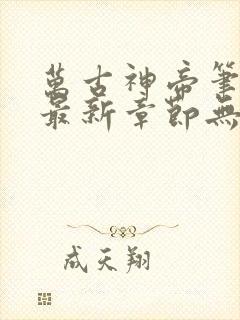 萬古神帝筆
最新章節無
成天翔